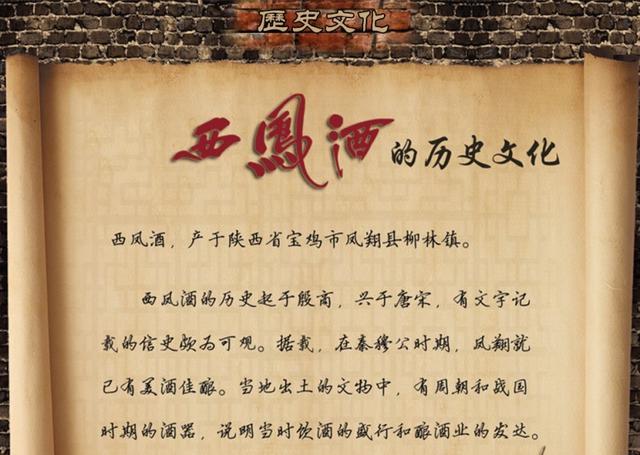 歷史文化
西鳳酒的历史文化
西凤酒，产于陕西省宝鸡市凤翔县柳林镇。
西凤酒的历史起于殷商，兴于唐宋，有文字记
载的信史颇为可观。据载，在秦穆公时期，凤翔就
已有美酒佳酿。当地出土的文物中，有周朝和战国
时期的酒器，说明当时饮酒的盛行和酿酒业的发达。